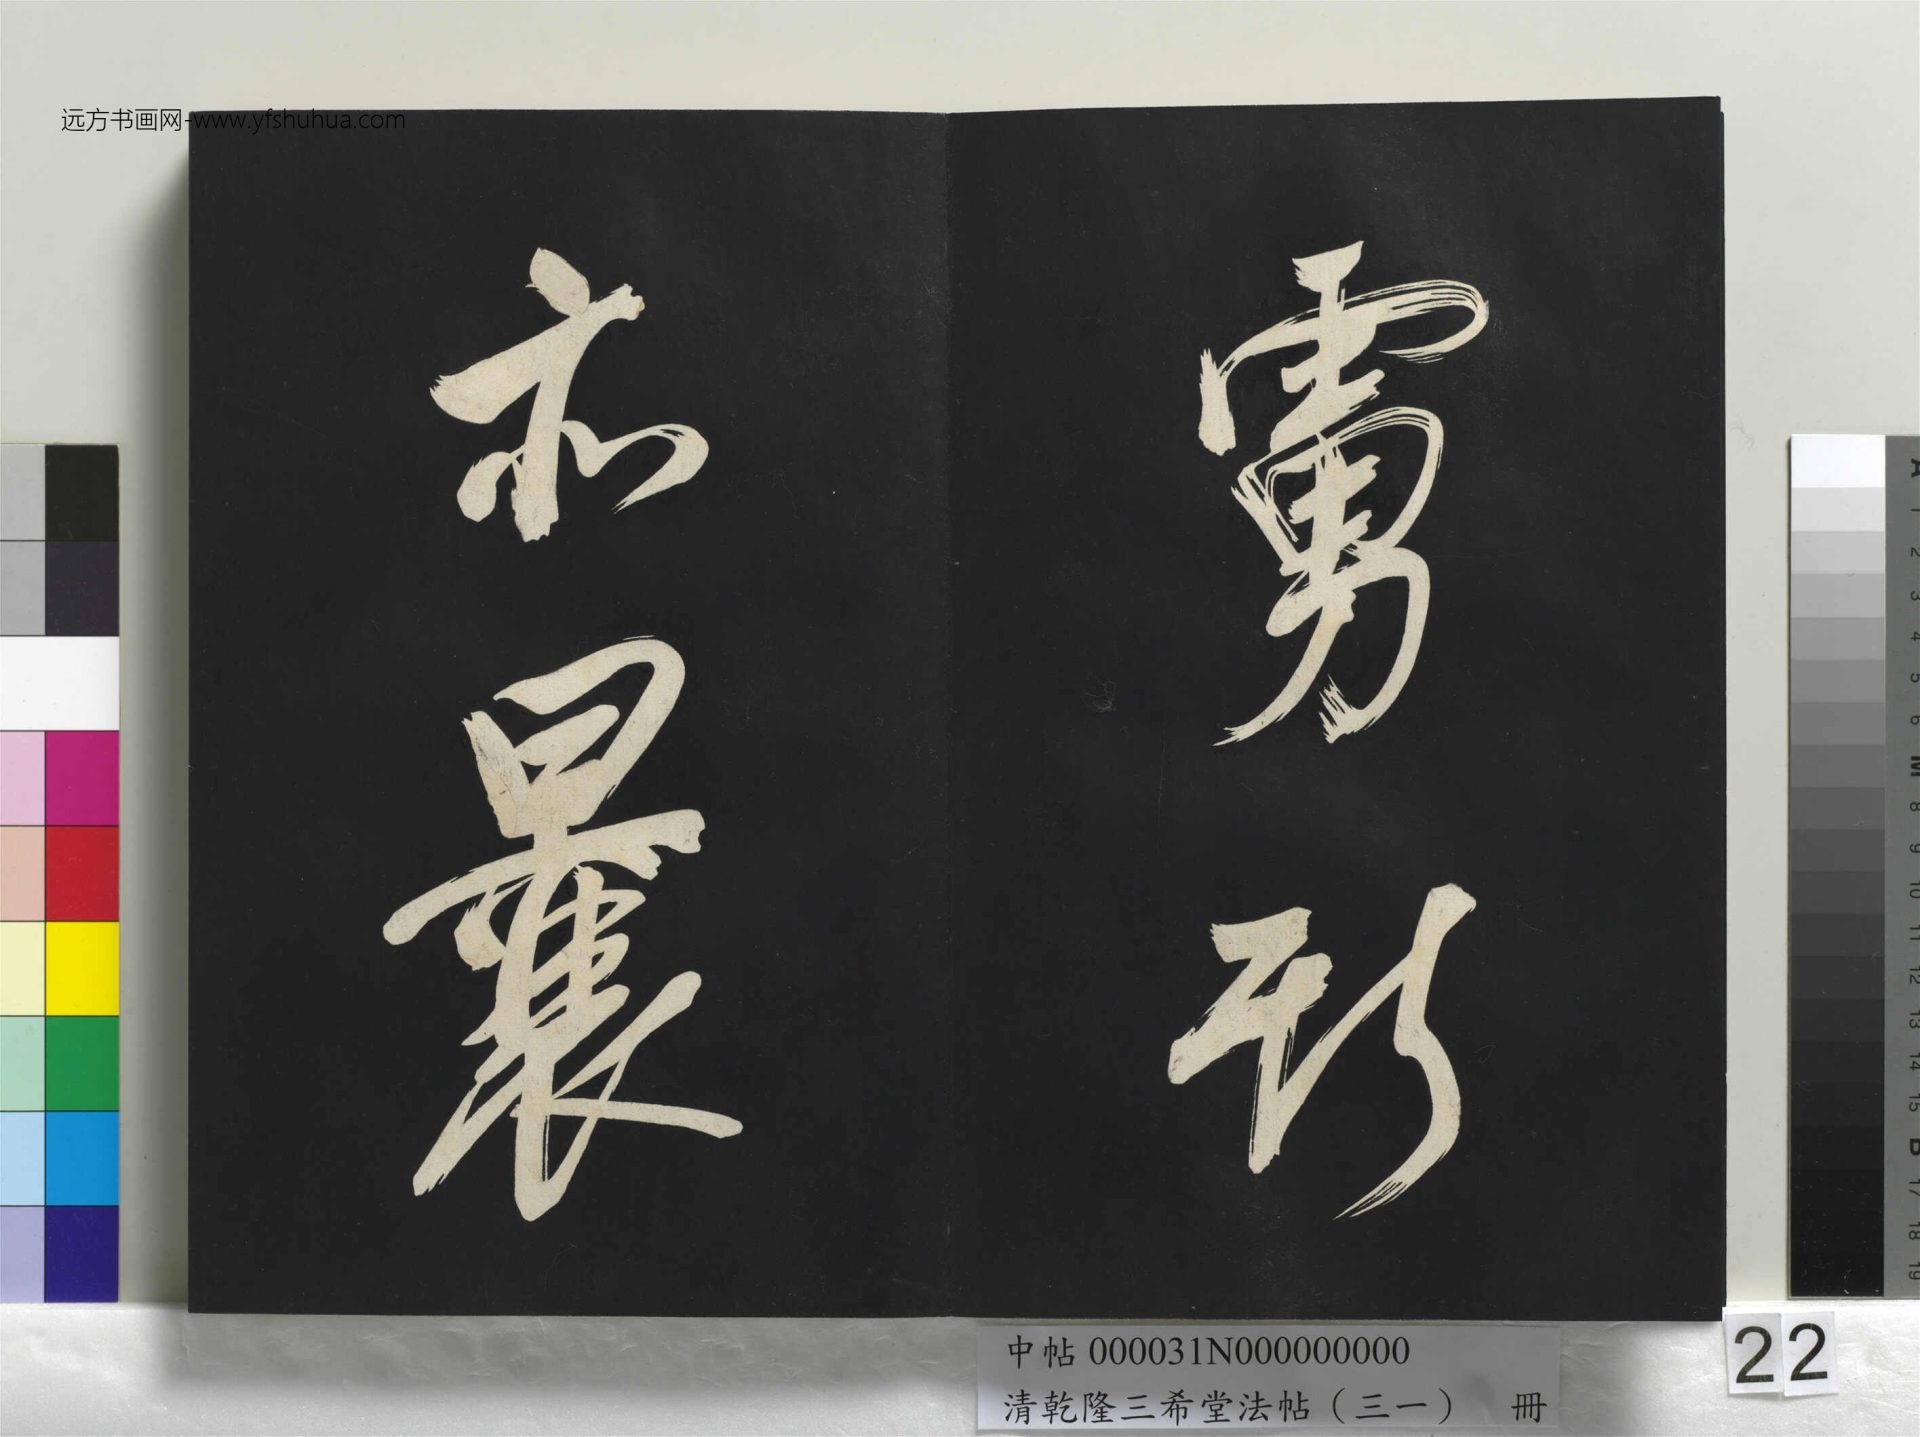 远方书画网-www.yfshuhua.com
亦曩
中帖 000031N000000000
清乾隆三希堂法帖（三一） 冊
22
A 1 2 3 4 5 6 M 8 9 10 11 12 13 14 15 B 17 18 19